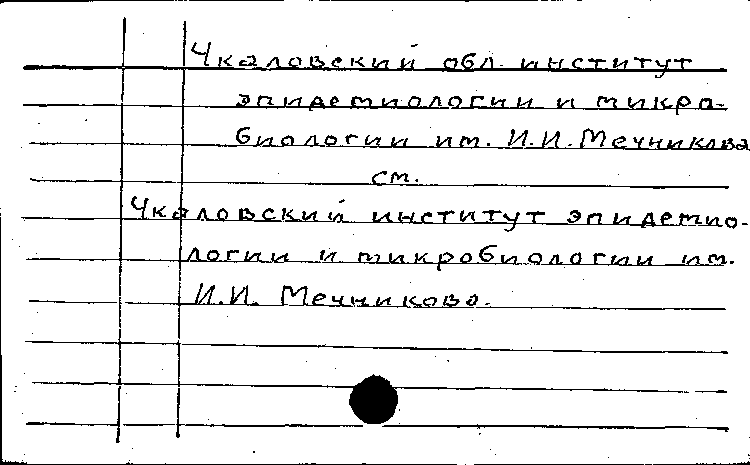 Чкаловский обл. институт
эпидемиологии и микро-
биологии им. И.И. Мечникова
см.
Чкаловский институт эпидемио-
логии и микробиологии им.
И.И. Мечникова.